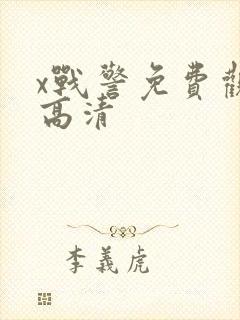 x戰警免費觀
高清
李義虎